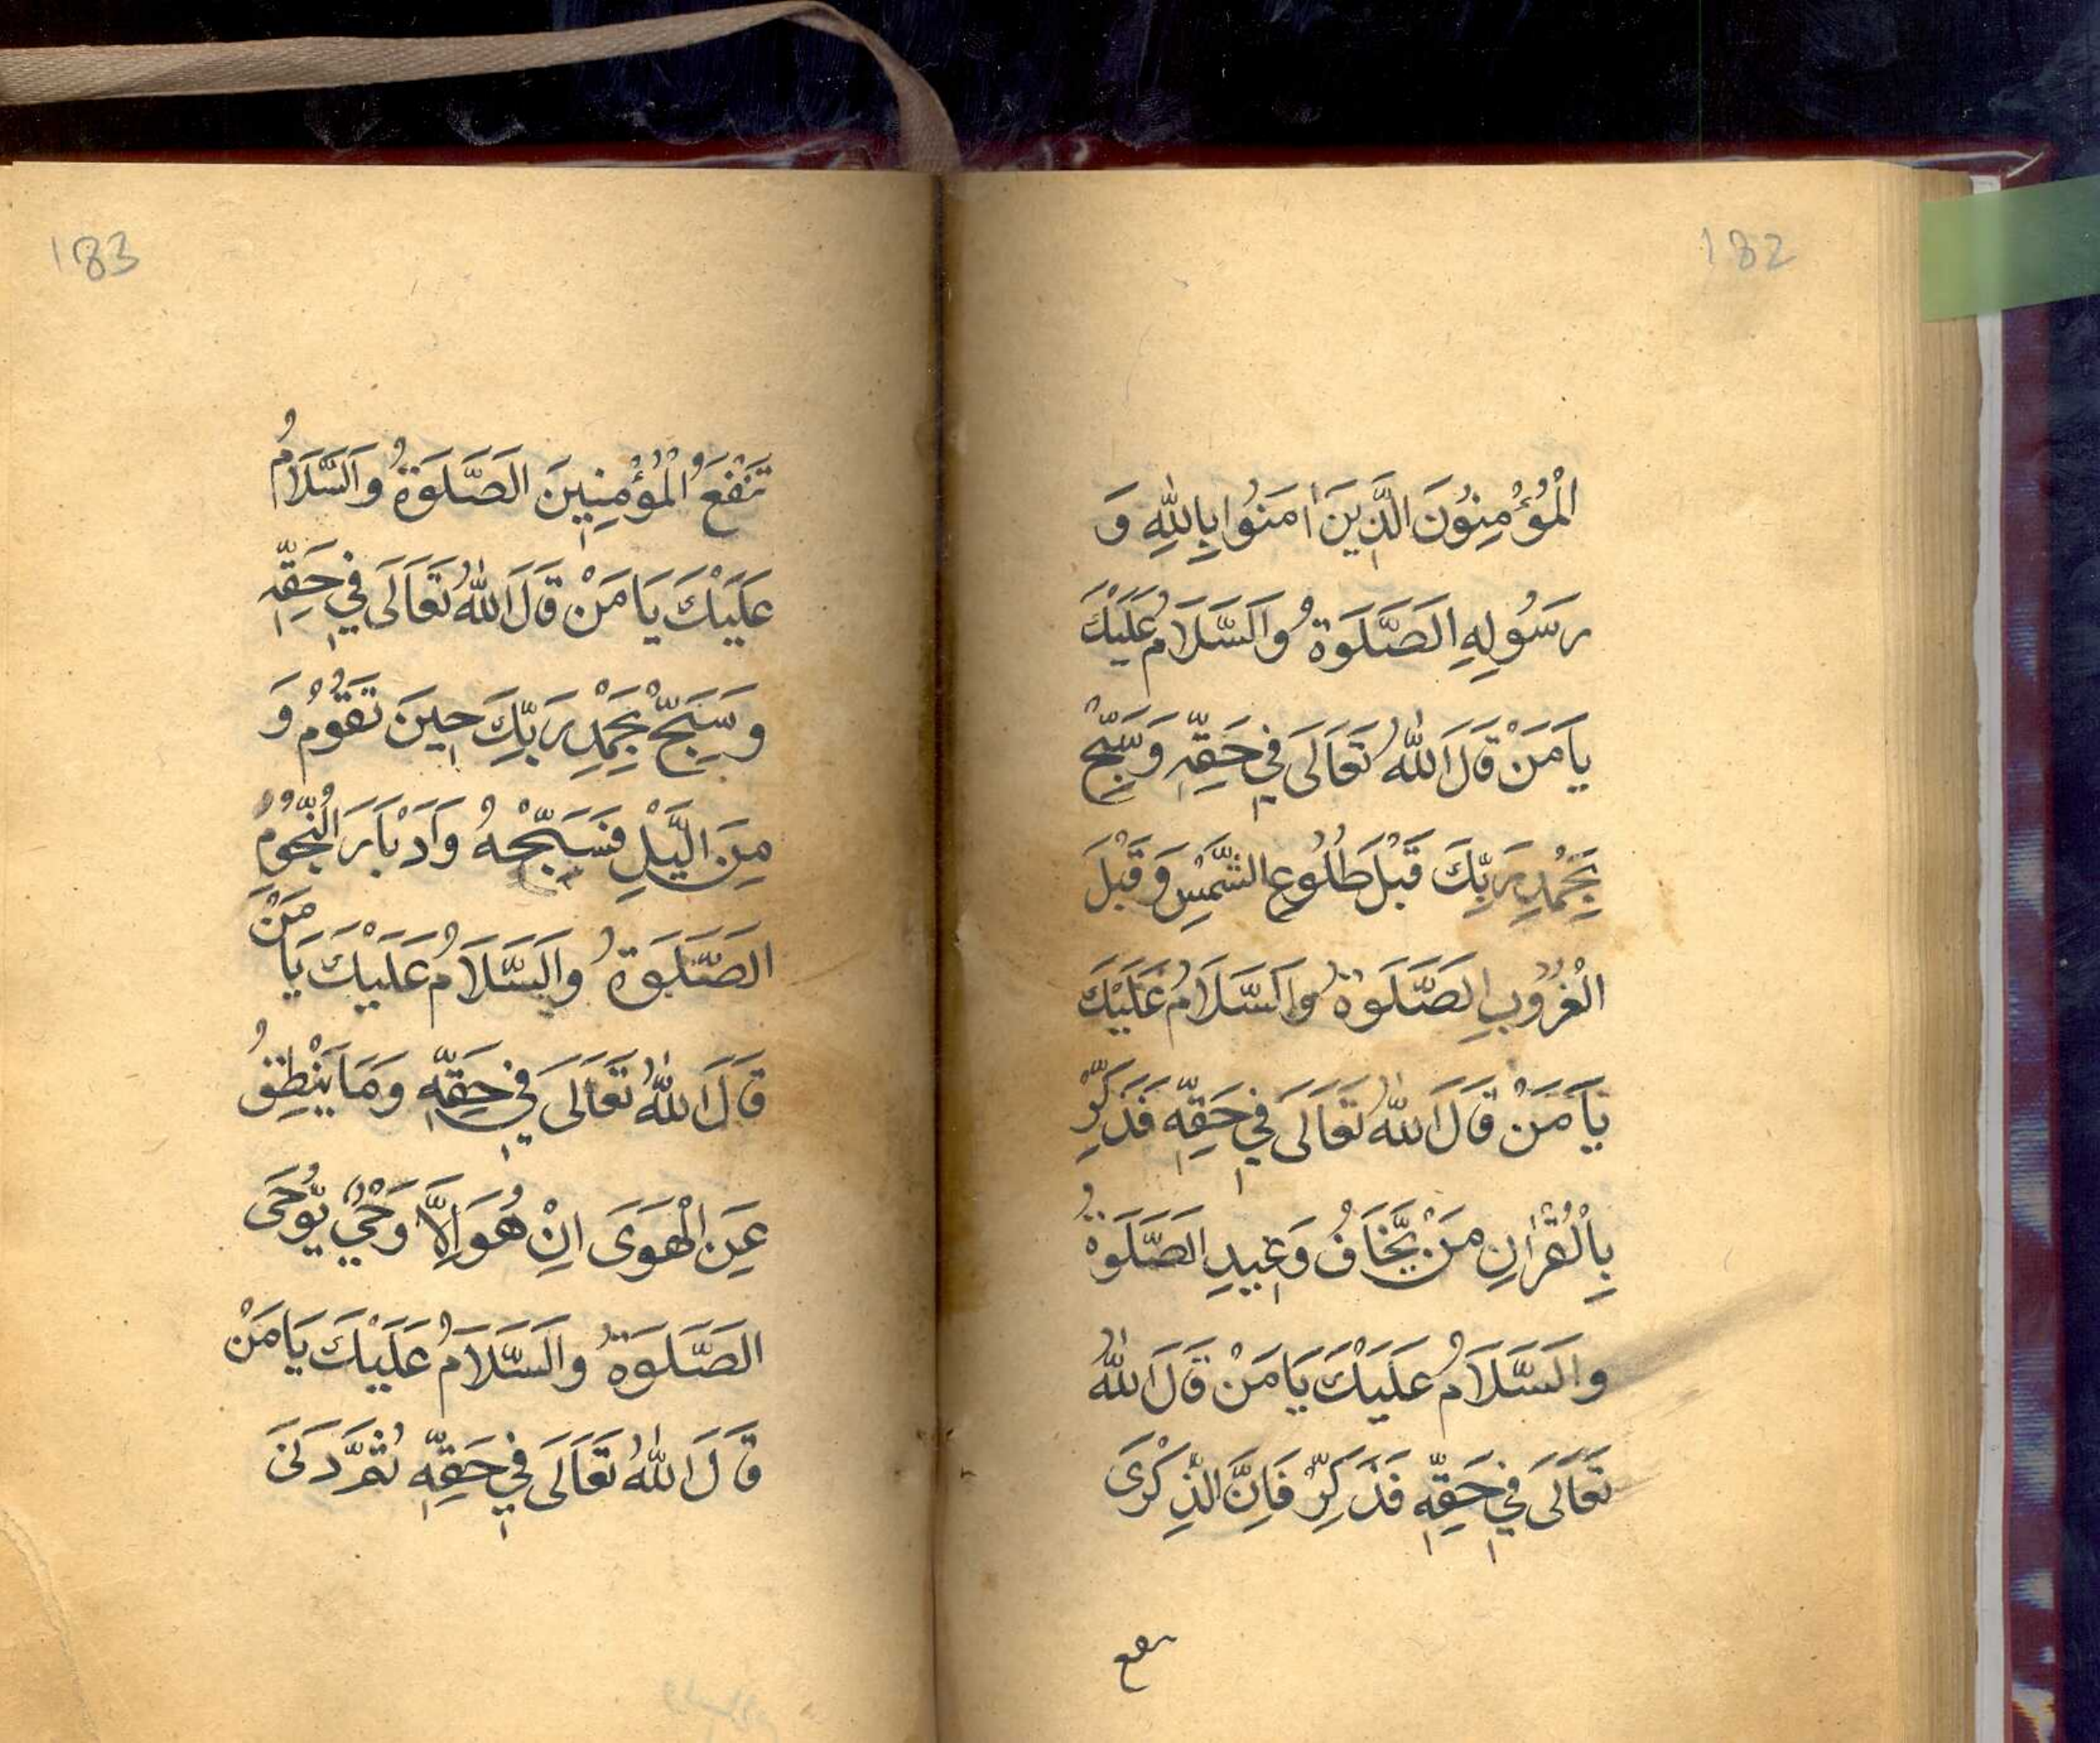 182
الْمُؤْمِنُونَ الَّذِينَ اٰمَنُوا بِاللّٰهِ وَ
رَسُولِهِ الصَّلَوةُ وَالسَّلَامُ عَلَيْكَ
يَا مَنْ قَالَ اللّٰهُ تَعَالَى فِي حَقِّهِ وَسَبِّحْ
بِحَمْدِ رَبِّكَ قَبْلَ طُلُوعِ الشَّمْسِ وَقَبْلَ
الْغُرُوبِ الصَّلَوةُ وَالسَّلَامُ عَلَيْكَ
يَا مَنْ قَالَ اللّٰهُ تَعَالَى فِي حَقِّهِ فَذَكِّرْ
بِالْقُرْاٰنِ مَنْ يَّخَافُ وَعِيدِ الصَّلَوةُ
وَالسَّلَامُ عَلَيْكَ يَا مَنْ قَالَ اللّٰهُ
تَعَالَى فِي حَقِّهِ فَذَكِّرْ فَاِنَّ الذِّكْرَى
تنفع
183
تَنْفَعُ الْمُؤْمِنِينَ الصَّلَوةُ وَالسَّلَامُ
عَلَيْكَ يَا مَنْ قَالَ اللّٰهُ تَعَالَى فِي حَقِّهِ
وَسَبِّحْ بِحَمْدِ رَبِّكَ حِينَ تَقُومُ وَ
مِنَ الَّيْلِ فَسَبِّحْهُ وَاَدْبَارَ النُّجُومِ
الصَّلَوةُ وَالسَّلَامُ عَلَيْكَ يَا مَنْ
قَالَ اللّٰهُ تَعَالَى فِي حَقِّهِ وَمَا يَنْطِقُ
عَنِ الْهَوَى اِنْ هُوَ اِلَّا وَحْيٌ يُّوحَى
الصَّلَوةُ وَالسَّلَامُ عَلَيْكَ يَا مَنْ
قَالَ اللّٰهُ تَعَالَى فِي حَقِّهِ ثُمَّ دَنَى